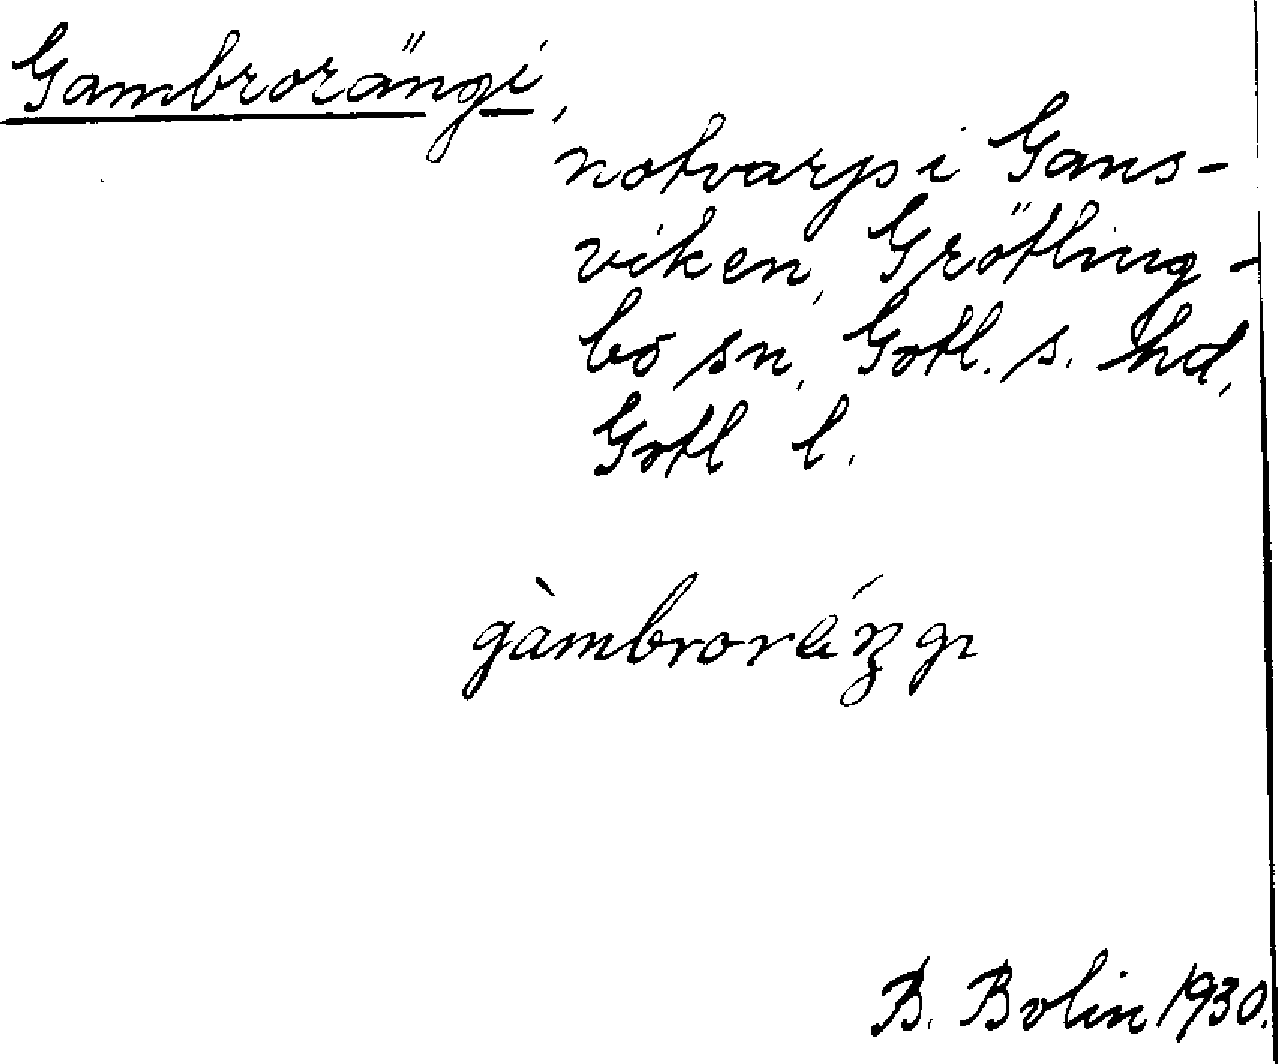 Gambrorängi,
notvarp i Gans-
viken, Grötling-
bo sn, Gotl. s. hd,
Gotl l.
gàmbroráŋgɩ
B. Bolin 1930.